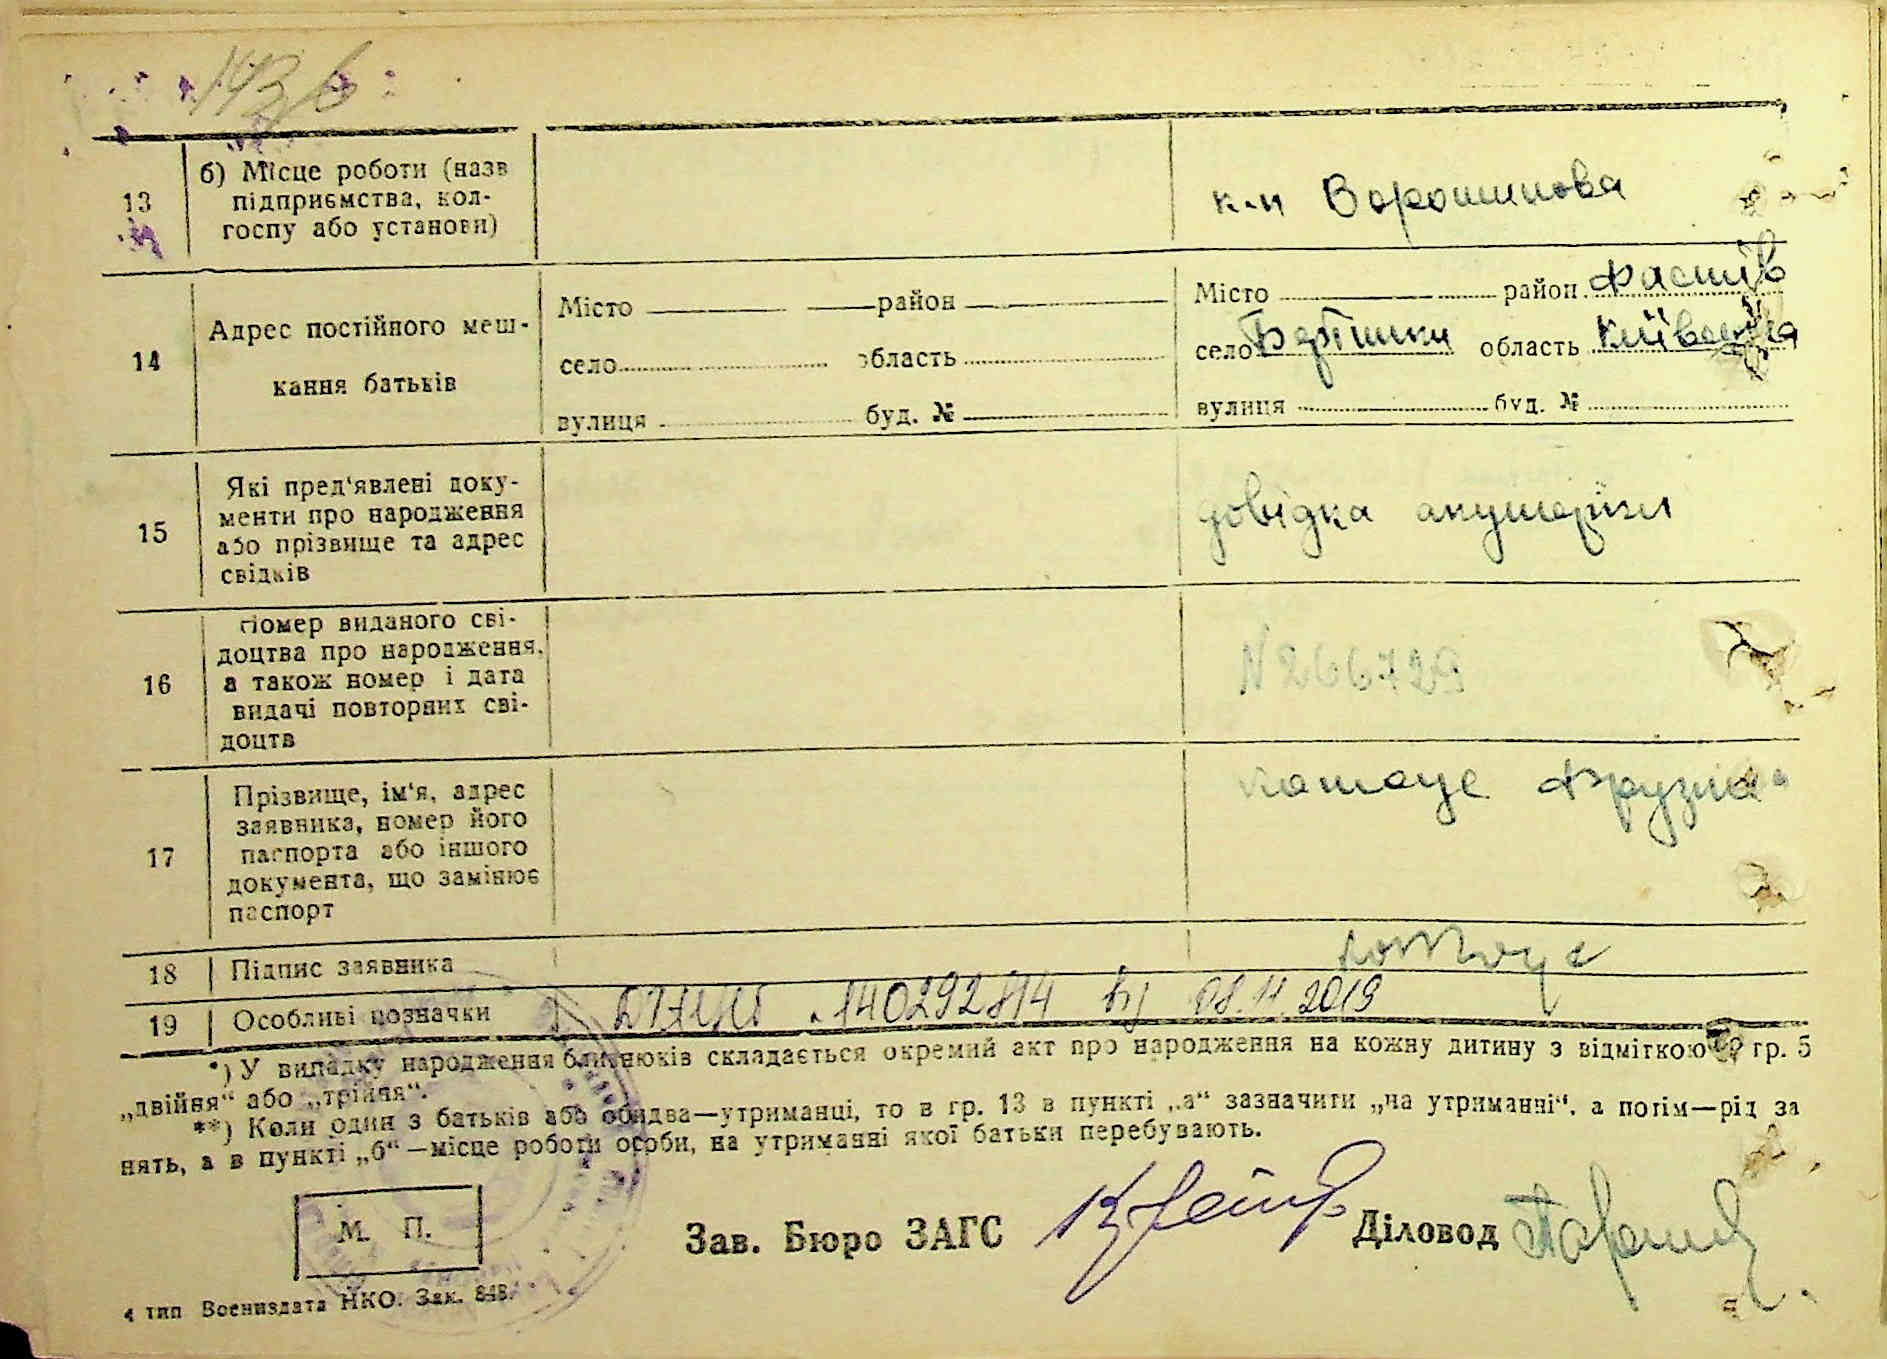 143 б
13
б) Місце роботи (назв
підприємства, кол-
госпу або установи)
к-п Ворошилова
14
Адрес постійного меш-
кання батьків
Місто район
село область
вулиця буд. №
Місто район Фастів
село область Київська
вулиця буд. №
15
Які пред'явлені доку-
менти про народження
або прізвище та адрес
свідків
довідка акушерки
16
Номер виданого сві-
доцтва про народження,
а також номер і дата
видачі повторних сві-
доцтв
N 266729
17
Прізвище, ім'я, адрес
заявника, номер його
паспорта або іншого
документа, що замінює
паспорт
18 Підпис заявника
19 Особливі позначки
140292814 від 08.11.2019
*) У випадку народження близнюків складається окремий акт про народження на кожну дитину з відміткою гр. 5
„двійня“ або „трійня“.
**) Коли один з батьків або обидва—утриманці, то в гр. 13 в пункті „а“ зазначити „на утриманні“, а потім—рід за
нять, а в пункті „б“—місце роботи особи, на утриманні якої батьки перебувають.
М. П.
Зав. Бюро ЗАГС
Діловод
4 тип Воениздата НКО. Зак. 848.